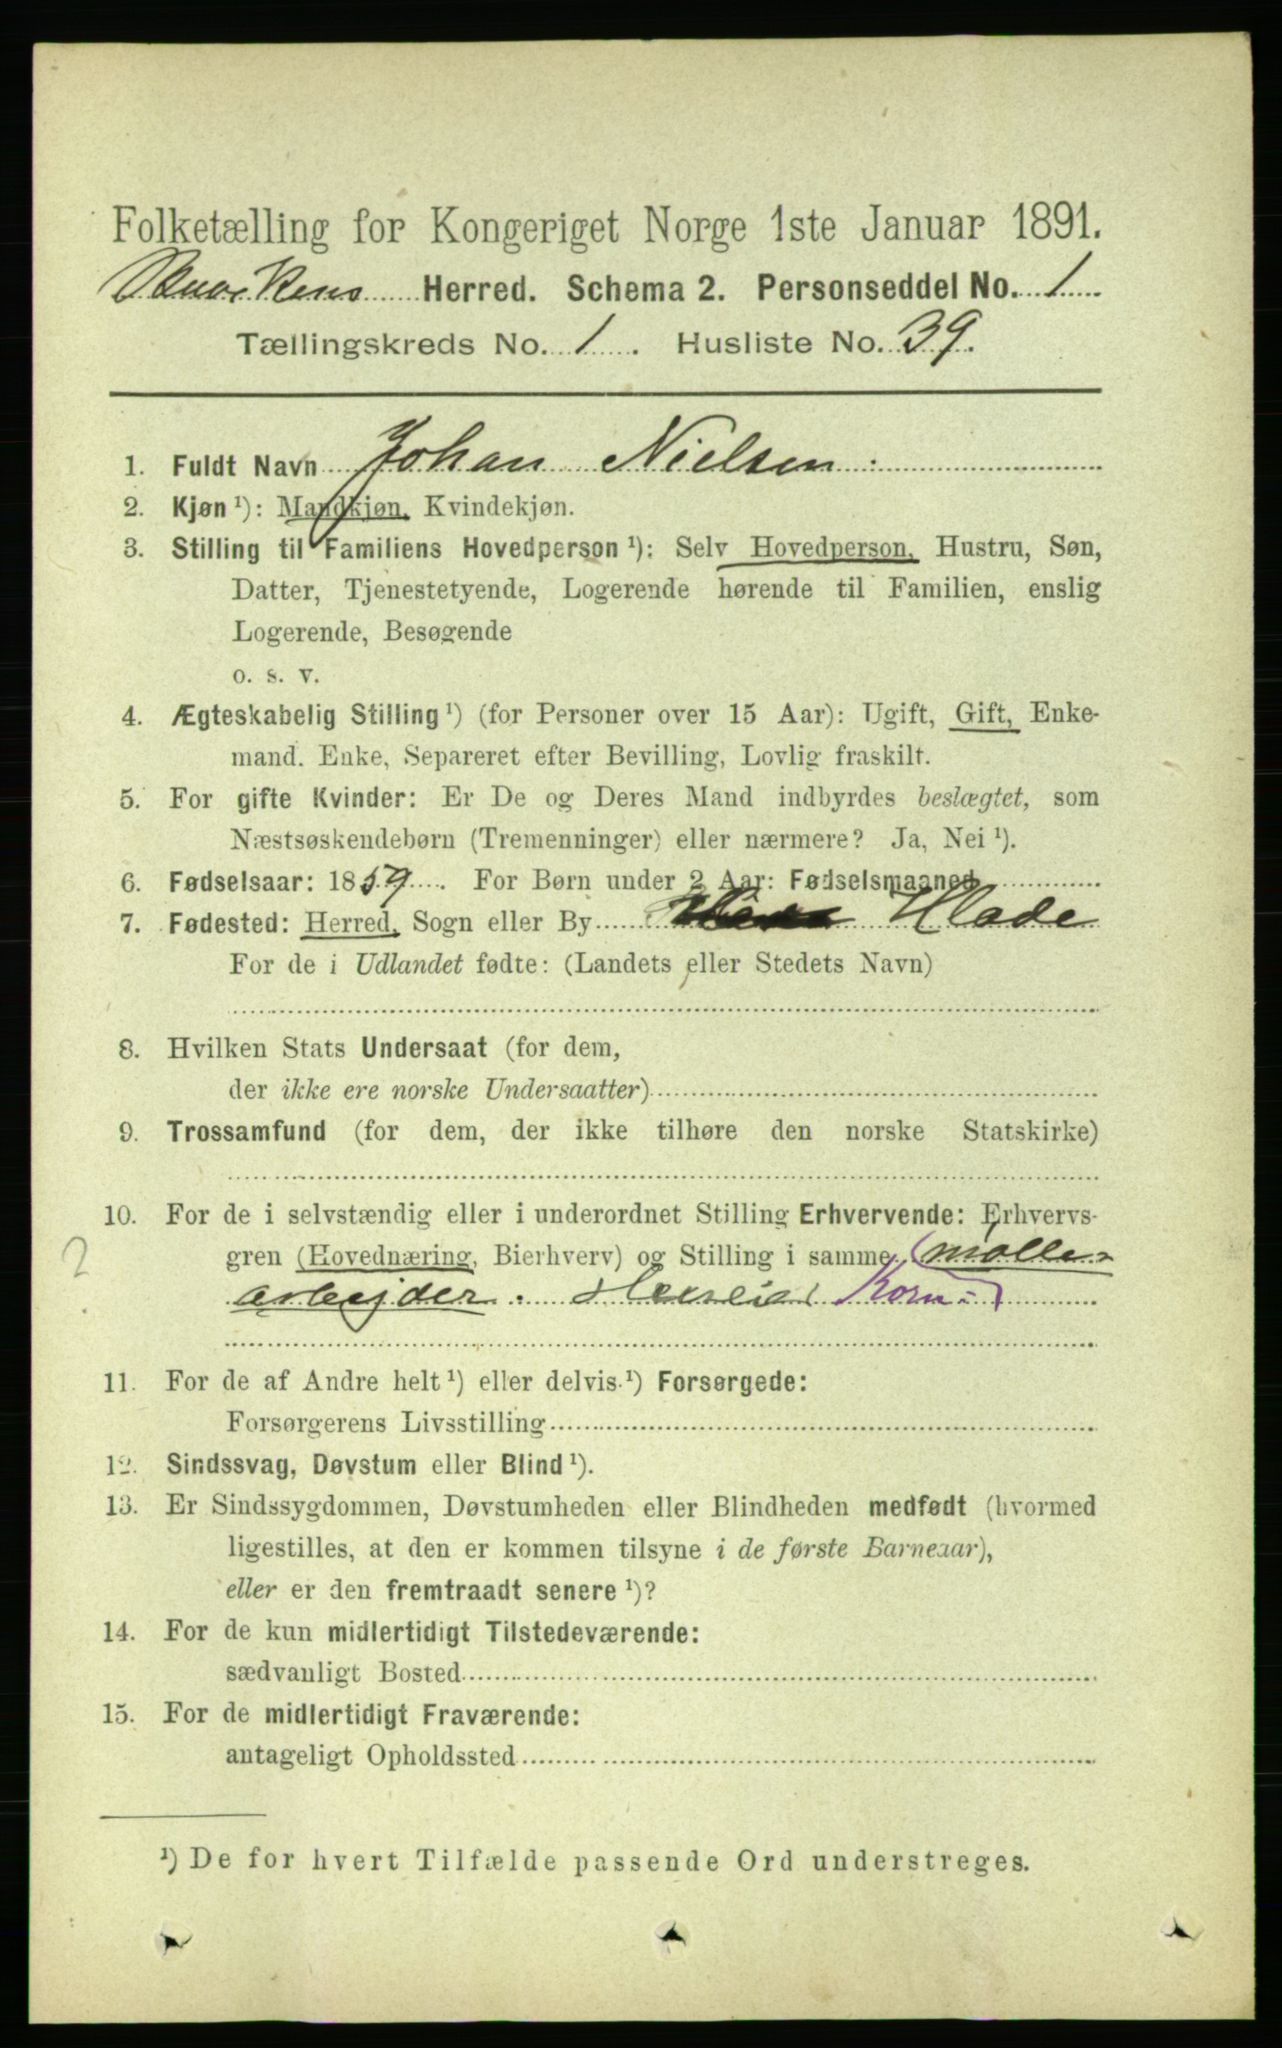 Folketælling for Kongeriget Norge 1ste Januar 1891.
Herred. Schema 2. Personseddel No. 1
Tællingskreds No. 1. Husliste No. 39.
1. Fuldt Navn Johan Nielsen
2. Kjøn ¹): Mandkjøn, Kvindekjøn.
3. Stilling til Familiens Hovedperson ¹): Selv Hovedperson, Hustru, Søn,
Datter, Tjenestetyende, Logerende hørende til Familien, enslig
Logerende, Besøgende
o. s. v.
4. Ægteskabelig Stilling ¹) (for Personer over 15 Aar): Ugift, Gift, Enke-
mand. Enke, Separeret efter Bevilling, Lovlig fraskilt.
5. For gifte Kvinder: Er De og Deres Mand indbyrdes beslægtet, som
Næstsøskendebørn (Tremenninger) eller nærmere? Ja, Nei ¹).
6. Fødselsaar: 1859. For Børn under 2 Aar: Fødselsmaaned
7. Fødested: Herred, Sogn eller By Hlade
For de i Udlandet fødte: (Landets eller Stedets Navn)
8. Hvilken Stats Undersaat (for dem,
der ikke ere norske Undersaatter)
9. Trossamfund (for dem, der ikke tilhøre den norske Statskirke)
10. For de i selvstændig eller i underordnet Stilling Erhvervende: Erhvervs-
gren (Hovednæring, Bierhverv) og Stilling i samme mølle-
arbejder. Korn-
11. For de af Andre helt ¹) eller delvis ¹) Forsørgede:
Forsørgerens Livsstilling
12. Sindssvag, Døvstum eller Blind ¹).
13. Er Sindssygdommen, Døvstumheden eller Blindheden medfødt (hvormed
2
ligestilles, at den er kommen tilsyne i de første Barneaar),
eller er den fremtraadt senere ¹)?
14. For de kun midlertidigt Tilstedeværende:
sædvanligt Bosted
15. For de midlertidigt Fraværende:
antageligt Opholdssted
¹) De for hvert Tilfælde passende Ord understreges.